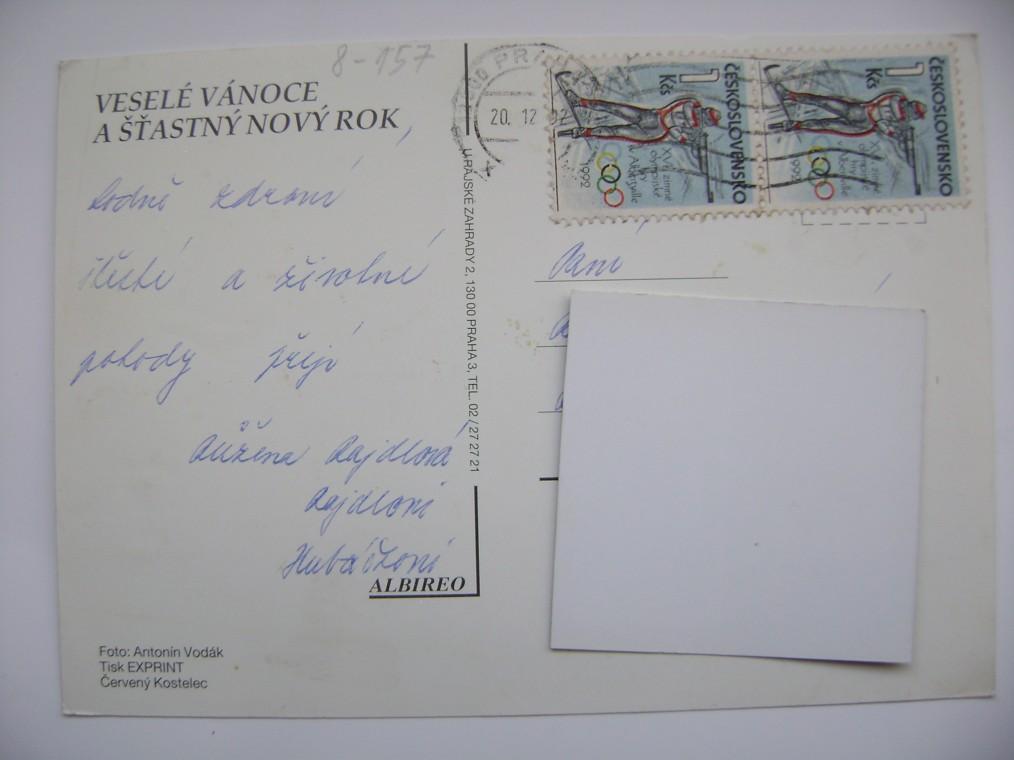 8-157
VESELÉ VÁNOCE
A ŠŤASTNÝ NOVÝ ROK
hodně zdraví
štěstí a životní
pohody přejí
Růžena Rajdlová
Rajdlovi
Hubáčkovi
U RAJSKÉ ZAHRADY 2, 130 00 PRAHA 3, TEL. 02/27 27 21
ALBIREO
Foto: Antonín Vodák
Tisk EXPRINT
Červený Kostelec
20. 12
1 Kčs
ČESKOSLOVENSKO
XVI. zimní
hry
olympijské
v Albertville
1992
1 Kčs
ČESKOSLOVENSKO
XVI. zimní
hry
olympijské
v Albertville
1992
Paní